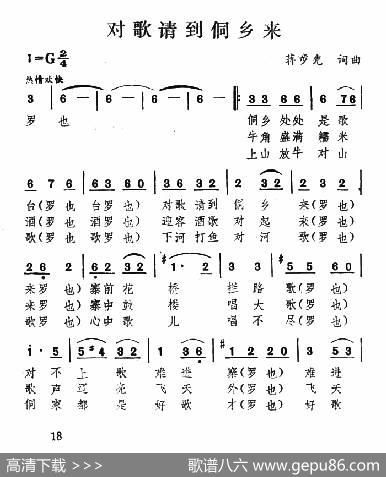 对歌请到侗乡来
1=G 2/4
热情欢快
词曲
3 6 - 6 - 6 - 6 - 3 3 6 6 6 7 6
罗 也 侗乡 处处 是 歌
牛角 盛满 糯 米
上山 放牛 对 山
6 7 2 3 6 3 6 0 3 3 6 6 2 3 2 2 3 2
台(罗 也 台罗 也) 对歌 请到 侗 乡 来(罗 也
酒(罗 也 酒罗 也) 迎容 酒歌 对 起 来(罗 也
歌(罗 也 歌罗 也) 下河 打鱼 对 河 歌(罗 也
2 6 6 2 6 0 3 2 #1 · 2 3 3 #5 5 6 0
来罗 也) 寨前 花 桥 拦 路 歌(罗 也)
来罗 也) 寨中 鼓 楼 唱 大 歌(罗 也)
歌罗 也) 心中 歌 儿 唱 不 尽(罗 也)
1 · 5 5 #4 3 2 1 2 3 6 #1 2 2 3 2 3 0
对 不 上 歌 难 进 寨(罗 也) 难进
歌 声 辽 亮 飞 天 外(罗 也) 飞天
侗 家 都 是 好 歌 才(罗 也) 好歌
18
高清下载 >>>>
歌谱八六 www.gepu86.com